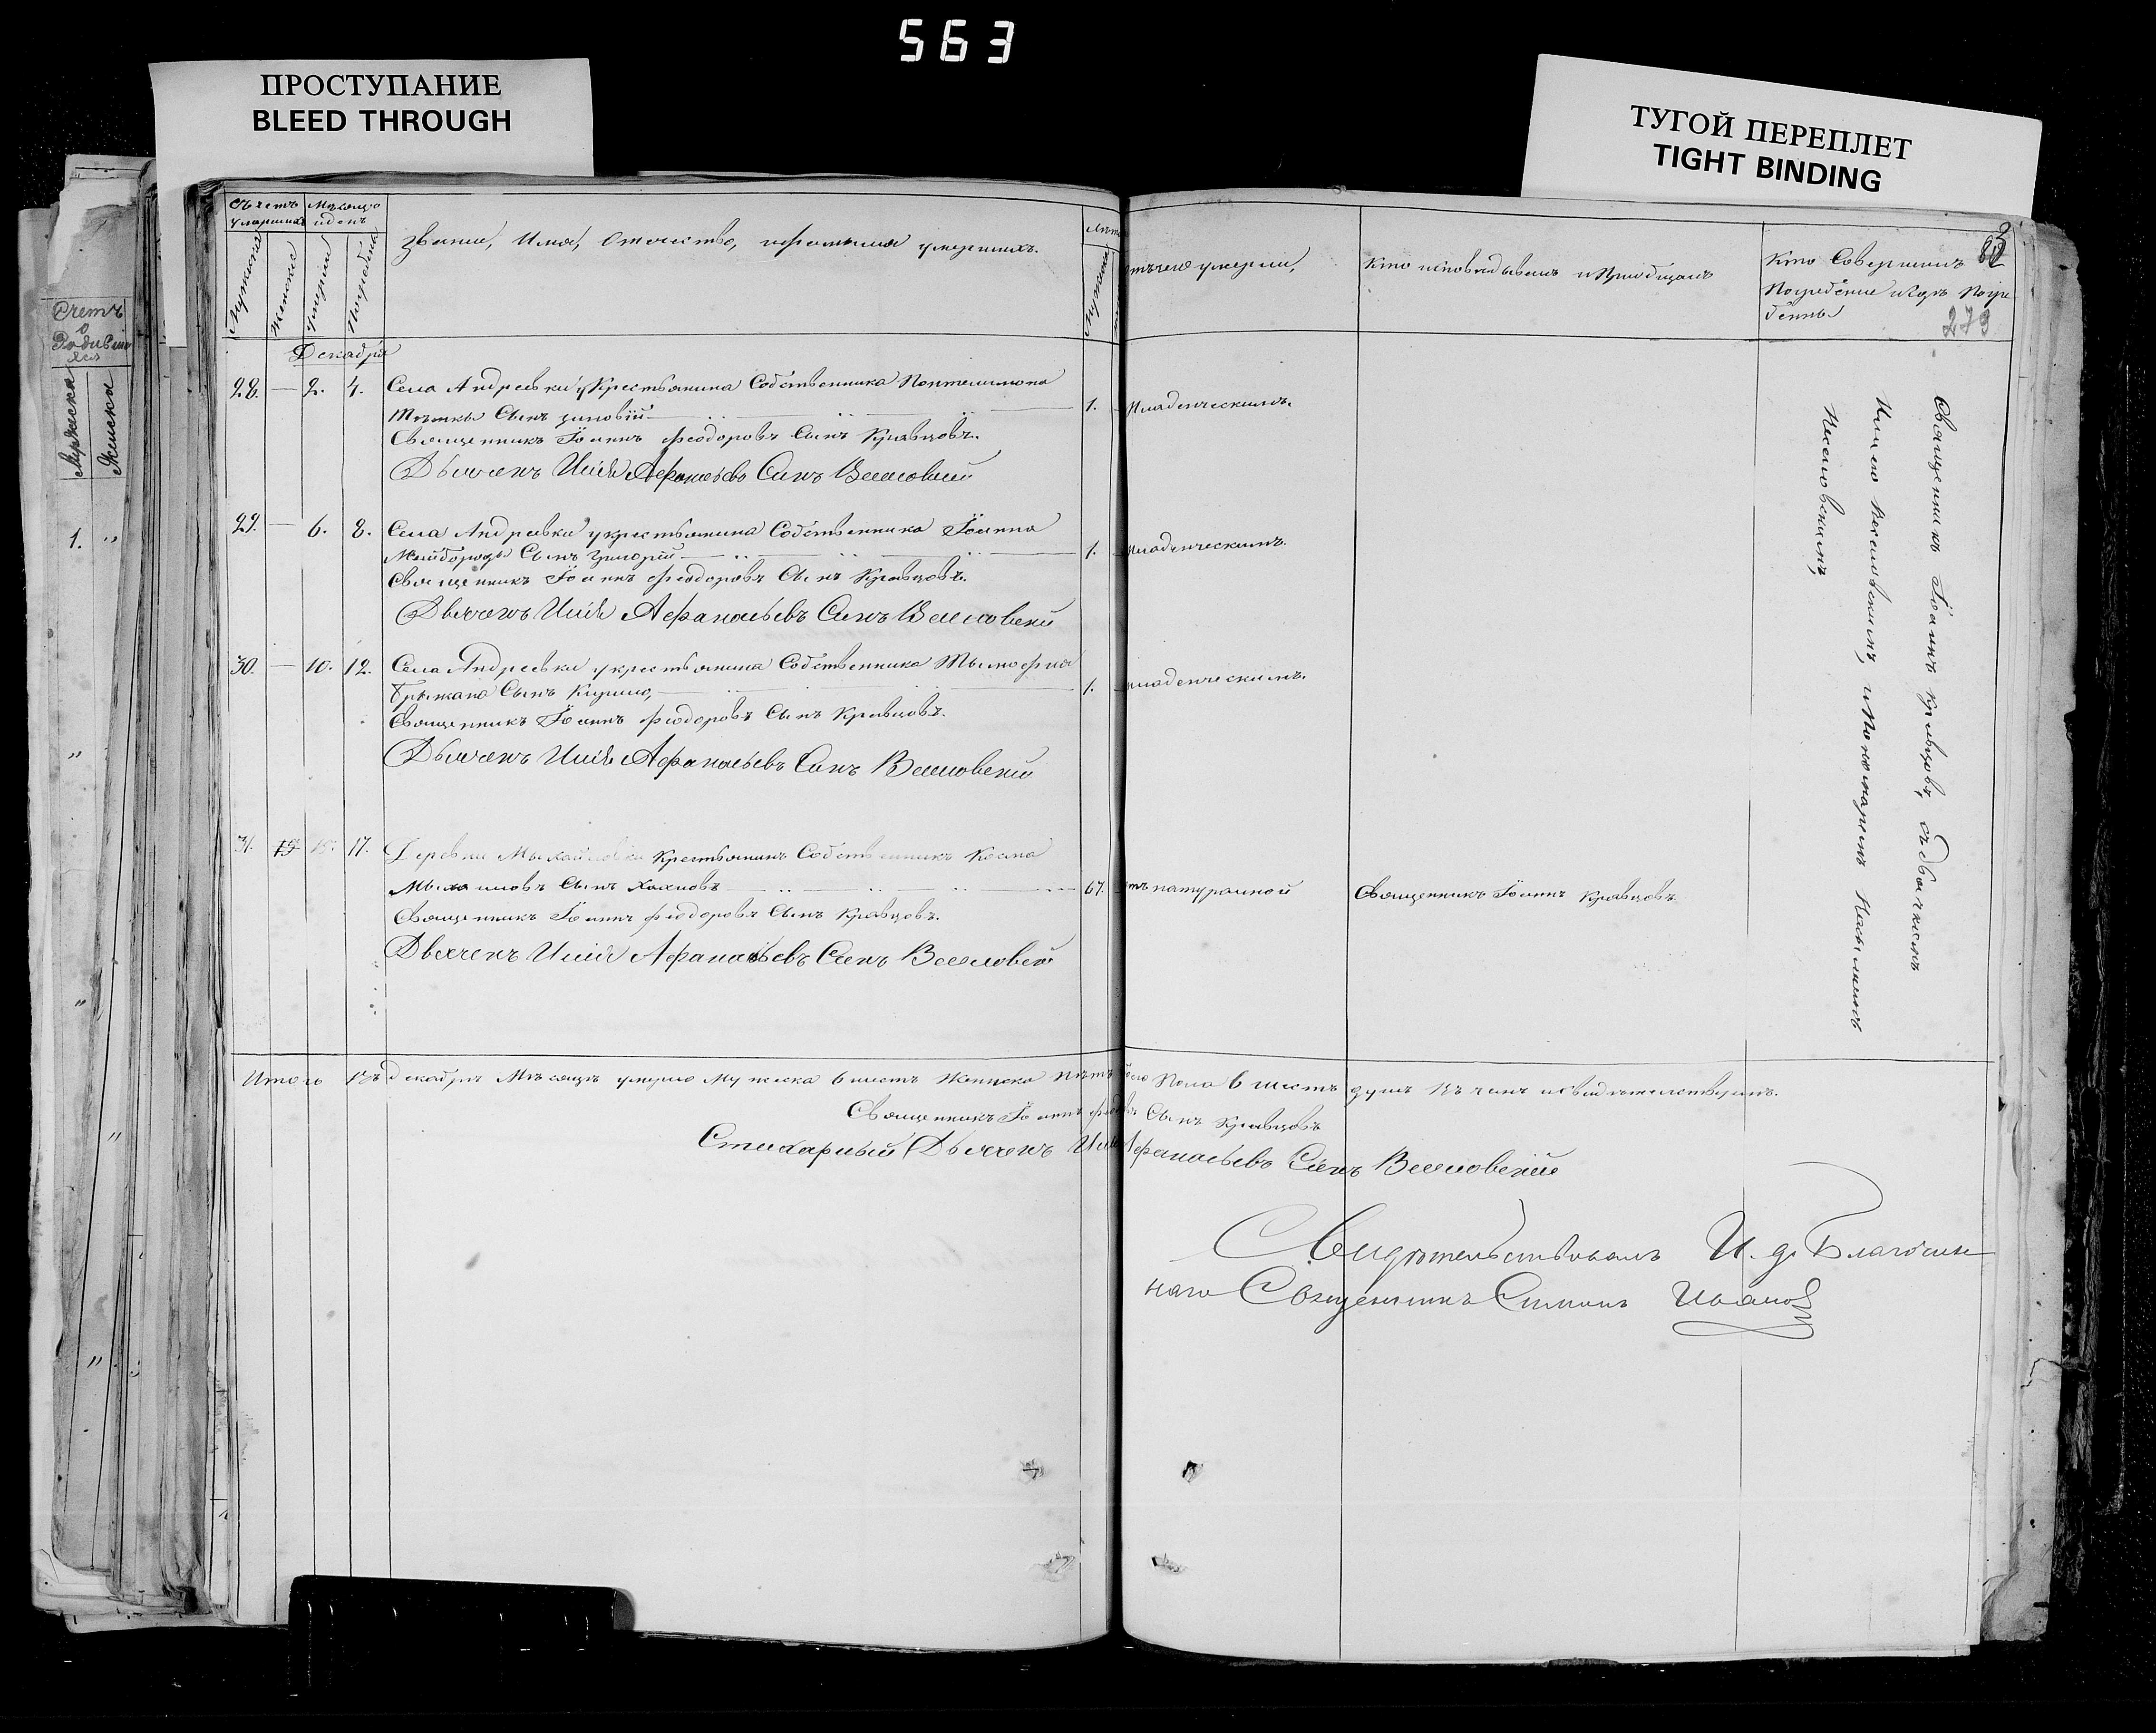 563
ПРОСТУПАНИЕ
BLEED THROUGH
ТУГОЙ ПЕРЕПЛЕТ
TIGHT BINDING
Счетъ
о
Родивших
ся
Мужеска
Женска
1. "
Счетъ умершихъ
Мѣсяцъ и день
Мужеска
Женска
Умерли
Погребены
Званіе, Имя, Отчество, и фамилія умершихъ.
Лѣта
Мужеска
отъ чего умерли,
Кто исповѣдывалъ и пріобщалъ
Кто Совершилъ
Погребеніе и гдѣ Погре
бены
273
Декабрь
28. — 2. 4. Села Андреевки у Крестьянина Собственника Пантелимона
сынъ Зиновій 1. Младенческимъ.
Священникъ Іоаннъ Феодоровъ Сынъ Кравцовъ.
Дьячекъ Илія Афанасьевъ Синъ Веселовскій
29. — 6. 8. Села Андреевки у крестьянина Собственника Іоанна
Майбороды Сынъ Григорій 1. младенческимъ.
Священникъ Іоаннъ Феодоровъ Сынъ Кравцовъ.
Дьячекъ Илія Афанасьевъ Синъ Веселовскій
30. — 10. 12. Села Андреевки у крестьянина Собственника Тымофея
Сынъ Кирило, 1. младенческимъ.
Священникъ Іоаннъ Феодоровъ Сынъ Кравцовъ.
Дьячекъ Илія Афанасьевъ Синъ Веселовскій
31. 15. 17. Деревни Михайловки Крестьянинъ Собственникъ Косма
сынъ 67. отъ натуральной Священникъ Іоаннъ Кравцовъ
Священникъ Іоаннъ Феодоровъ Сынъ Кравцовъ.
Дьячекъ Илія Афанасьевъ Синъ Веселовскій
Священникъ Іоаннъ Кравцовъ, съ дьячкомъ
Илиею Веселовскимъ, и Пономаремъ
Веселовскимъ,
Итого въ декабрѣ Мѣсяцѣ умерло Мужеска 6 шесть Женска нѣтъ обоего Пола 6 шесть душъ въ чемъ и свидѣтельствуемъ.
Священникъ Іоаннъ Феодоровъ Сынъ Кравцовъ
Стихарный Дьячекъ Илія Афанасьевъ Синъ Веселовскій
Свидѣтельствовалъ И. д. Благочин
наго Священникъ Симонъ Ивановъ